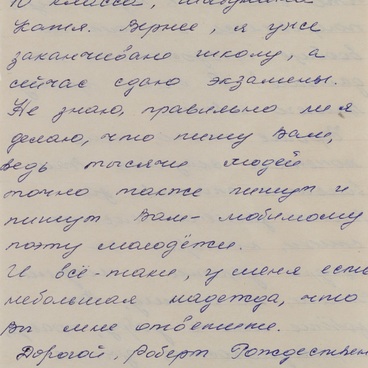 10 класса,
Катя. Вернее, я уже
заканчиваю школу, а
сейчас сдаю экзамены.
Не знаю, правильно ли я
делаю, что пишу Вам,
ведь тысячи людей
точно также пишут и
пишут Вам - любимому
поэту молодёжи.
И всё-таки, у меня есть
небольшая надежда, что
Вы мне ответите.
Дорогой, Роберт Рождествен